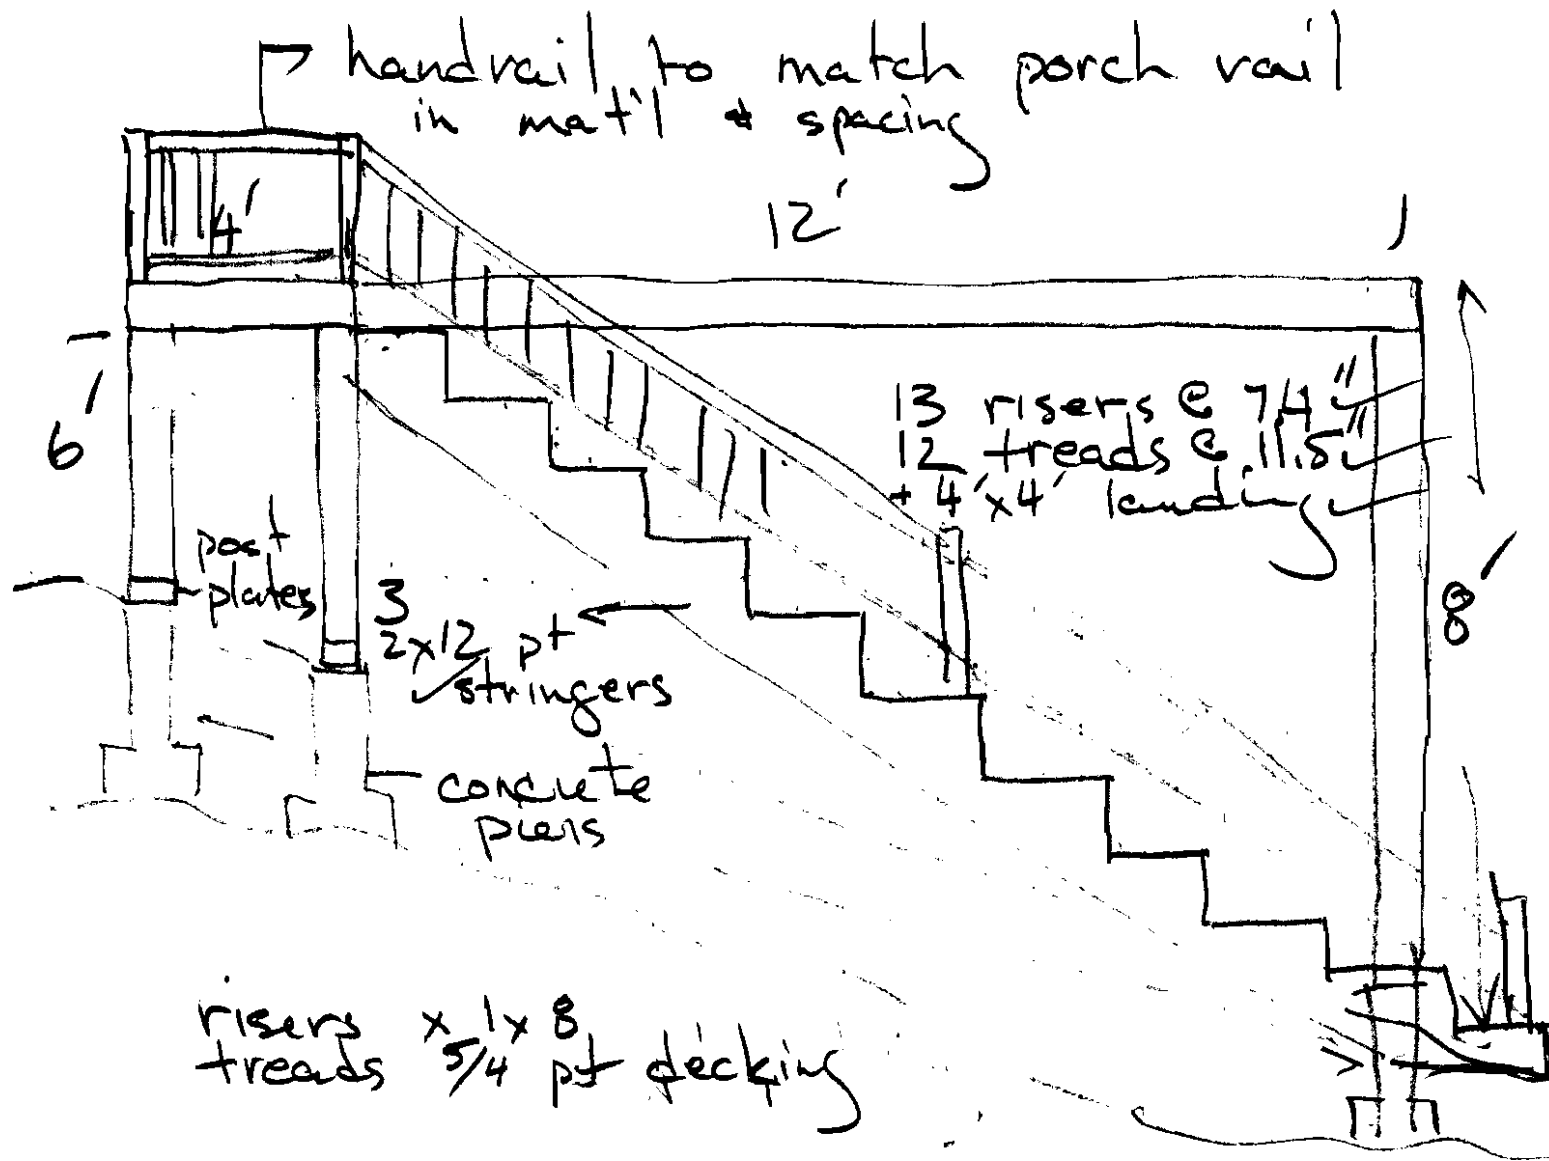 handrail to match porch rail
in mat'l & spacing
4'
12'
6'
13 risers @ 7.4"
12 treads @ 11.5"
+ 4'x4' landing
post
plates
3
2x12 pt
stringers
8'
concrete
piers
risers x 1x8
treads 5/4 pt decking